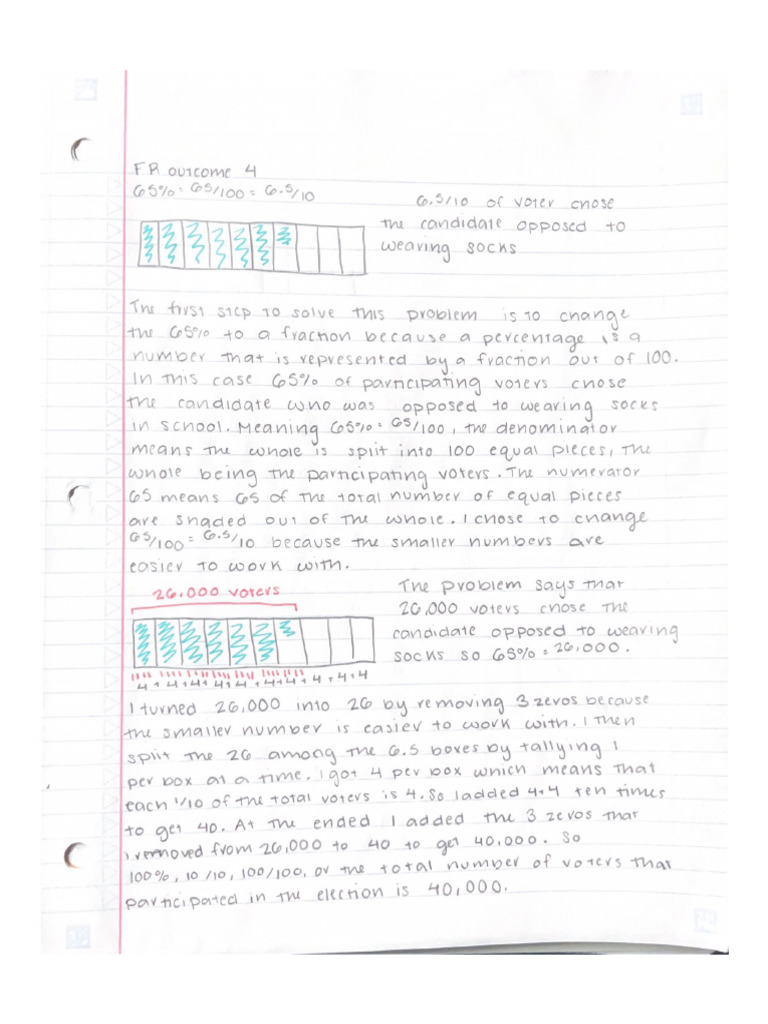 FR outcome 4
65% = 65/100 = 6.5/10
6.5/10 of voter chose
the candidate opposed to
wearing socks
The first step to solve this problem is to change
the 65% to a fraction because a percentage is a
number that is represented by a fraction out of 100.
In this case 65% of participating voters chose
the candidate who was opposed to wearing socks
in school. Meaning 65% = 65/100, the denominator
means the whole is split into 100 equal pieces, the
whole being the participating voters. The numerator
65 means 65 of the total number of equal pieces
are shaded out of the whole. I chose to change
65/100 = 6.5/10 because the smaller numbers are
easier to work with.
26,000 voters
The problem says that
26,000 voters chose the
candidate opposed to wearing
socks so 65% = 26,000.
4 + 4 + 4 + 4 + 4 + 4 + 4 + 4 + 4 + 4
I turned 26,000 into 26 by removing 3 zeros because
the smaller number is easier to work with. I then
split the 26 among the 6.5 boxes by tallying 1
per box at a time. I got 4 per box which means that
each 1/10 of the total voters is 4. So I added 4+4 ten times
to get 40. At the ended I added the 3 zeros that
I removed from 26,000 to 40 to get 40,000. So
100%, 10/10, 100/100, or the total number of voters that
participated in the election is 40,000.